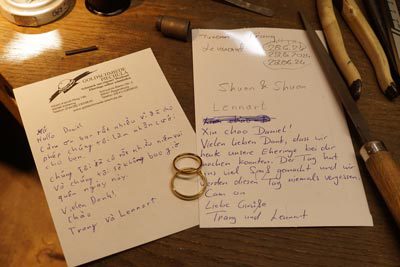 GOLDSCHMIEDE
Hallo Daniel
Cảm ơn bạn rất nhiều vì đã cho
phép chúng tôi làm nhẫn cưới
cho bạn.
Chúng tôi đã có rất nhiều niềm vui
và chúng tôi sẽ không bao giờ
quên ngày này
Vielen Dank!
Trang và Lennart
Trang
Lennart
28.6.24
Shuan & Shuan
Lennart
Xin chao Daniel!
Vielen lieben Dank, dass wir
heute unsere Eheringe bei dir
machen konnten. Der Tag hat
uns viel Spaß gemacht und wir
werden diesen Tag niemals vergessen.
Cam on
Liebe Grüße
Trang und Lennart